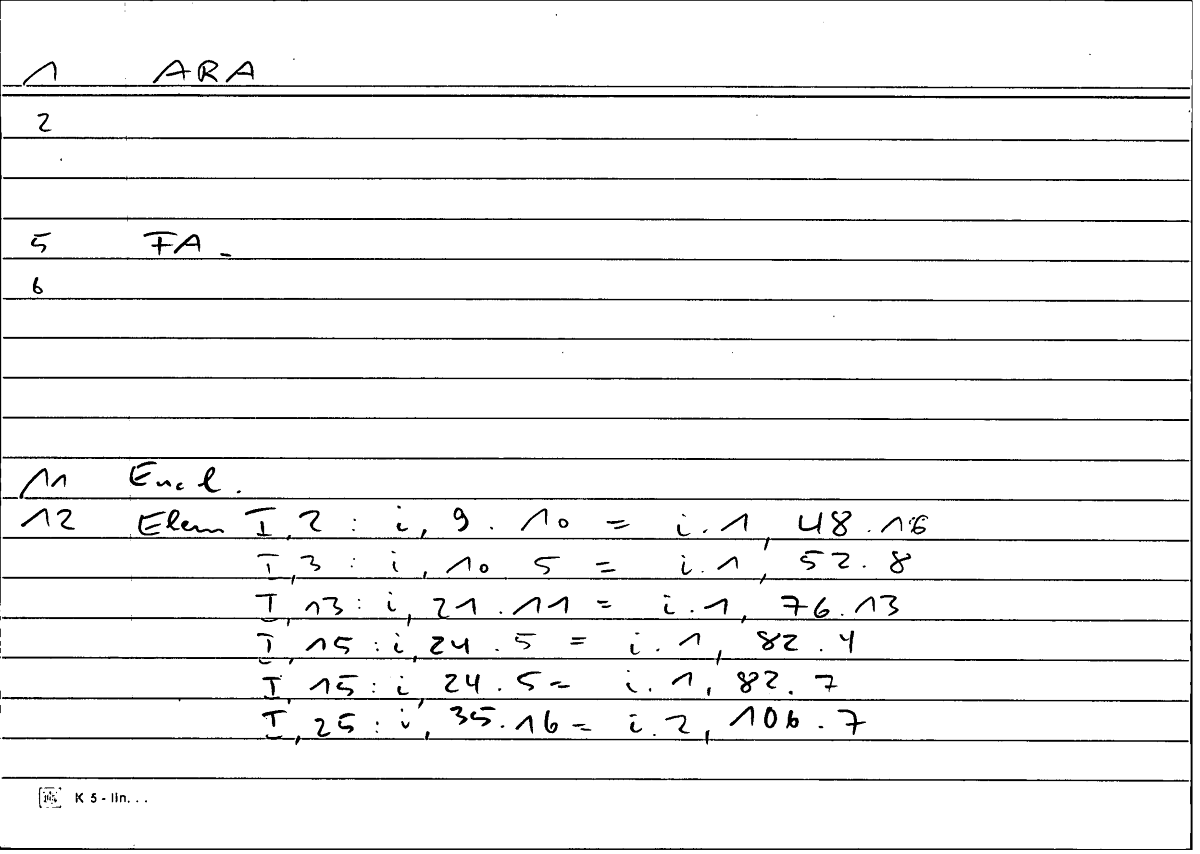 1 ARA
2
5 FA -
6
11 Eucl.
12 Elem I, 2 : i, 9. 10 = i.1, 48.16
I, 3 : i, 10 5 = i.1, 52.8
I, 13 : i, 21.11 = i.1, 76.13
I, 15 : i, 24.5 = i.1, 82.4
I, 15 : i, 24.5 = i.1, 82.7
I, 25 : i, 35.16 = i.2, 106.7
K 5 - lin...